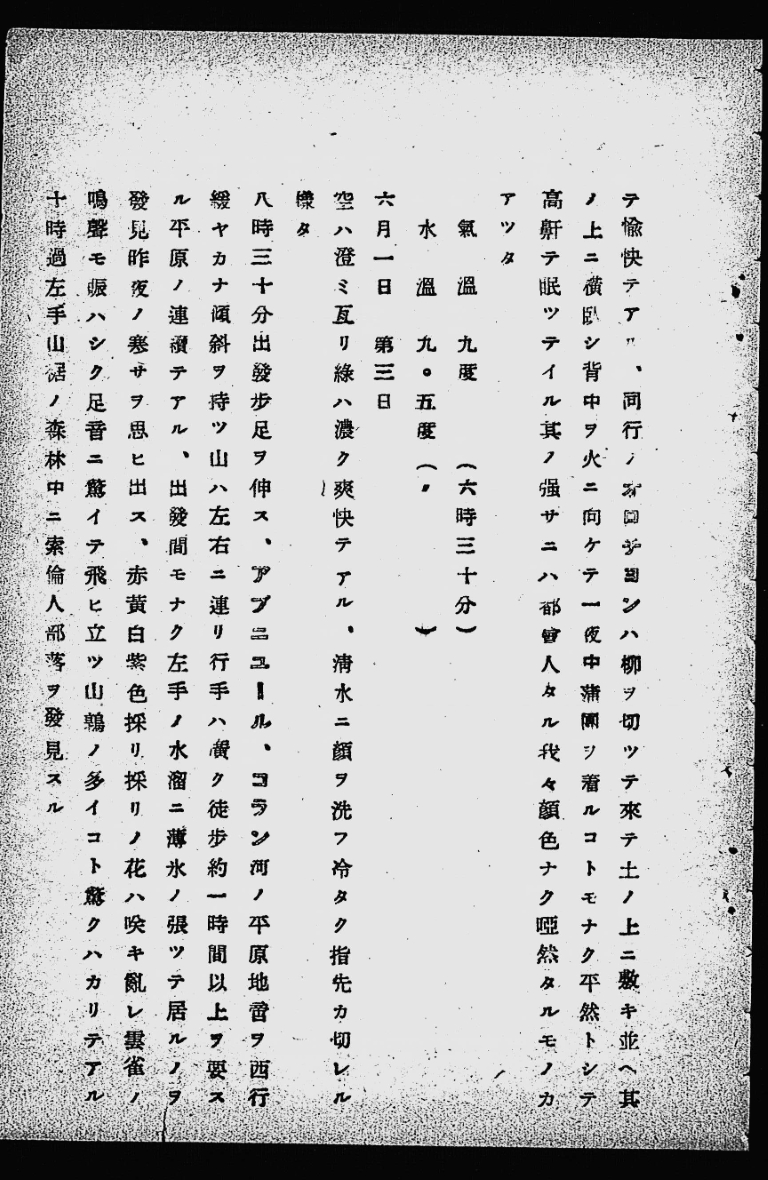 テ愉快テアル、同行ノオロチヨンハ柳ヲ切ツテ來テ土ノ上ニ敷キ並ヘ其
ノ上ニ横臥シ背中ヲ火ニ向ケテ一夜中蒲團ヲ着ルコトモナク平然トシテ
高鼾テ眠ツテイル其ノ强サニハ都會人タル我々顔色ナク啞然タルモノカ
アツタ
氣溫 九度 (六時三十分)
水溫 九。五度 (〃 )
六月一日 第三日
空ハ澄ミ亙リ綠ハ濃ク爽快テアル、清水ニ顔ヲ洗フ冷タク指先カ切レル
樣タ
八時三十分出發步足ヲ伸ス、アブニユール、コラン河ノ平原地帶ヲ西行
緩ヤカナ傾斜ヲ持ツ山ハ左右ニ連リ行手ハ廣ク徒步約一時間以上ヲ要ス
ル平原ノ連續テアル、出發間モナク左手ノ水溜ニ薄氷ノ張ツテ居ルノヲ
發見昨夜ノ寒サヲ思ヒ出ス、赤黃白紫色採リ採リノ花ハ咲キ亂レ雲雀ノ
鳴聲モ賑ハシク足音ニ驚イテ飛ヒ立ツ山鶉ノ多イコト驚クハカリテアル
十時過左手山裾ノ森林中ニ索倫人部落ヲ發見スル